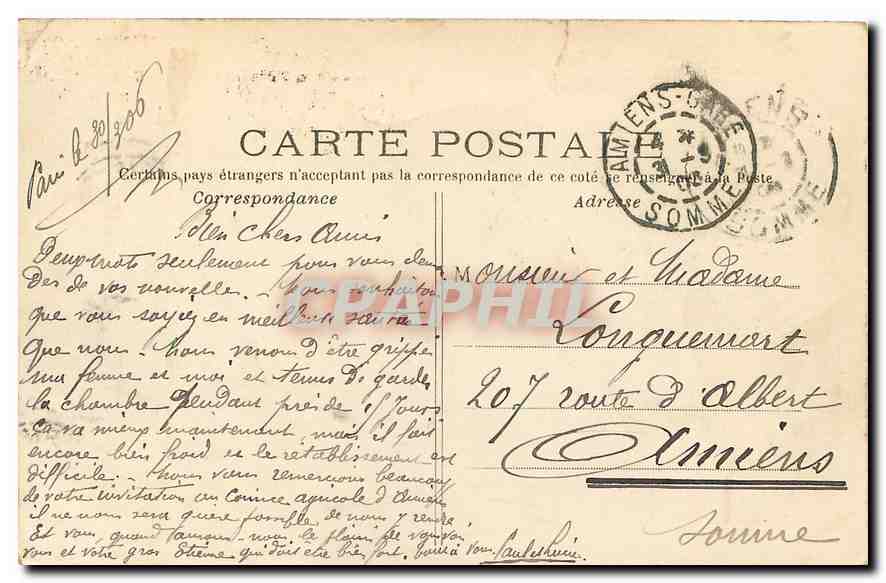 Paris le 30/3 06
CARTE POSTALE
Certains pays étrangers n'acceptant pas la correspondance de ce coté se renseigner à la Poste
Correspondance
Adresse
AMIENS-GARE
SOMME
SOMME
CPAPHIL
Bien Chers Amis
Deux mots seulement pour vous deman
der de vos nouvelles. Nous souhaitons
que vous soyez en meilleure santé
que nous. Nous venons d'être grippés
ma femme et moi et tenus de garder
la chambre pendant près de 15 Jours
ça va mieux maintenant, mais il fait
encore bien froid et le rétablissement est
difficile. Nous vous remercions beaucoup
de votre invitation au Comice agricole d'Amiens
il ne nous sera guère possible de nous y rendre
Et vous, quand aurons-nous le plaisir de vous voir
vous et votre gros Etienne qui doit être bien fort. à vous
Monsieur et Madame
Longuemart
207 route d'Albert
Amiens
Somme